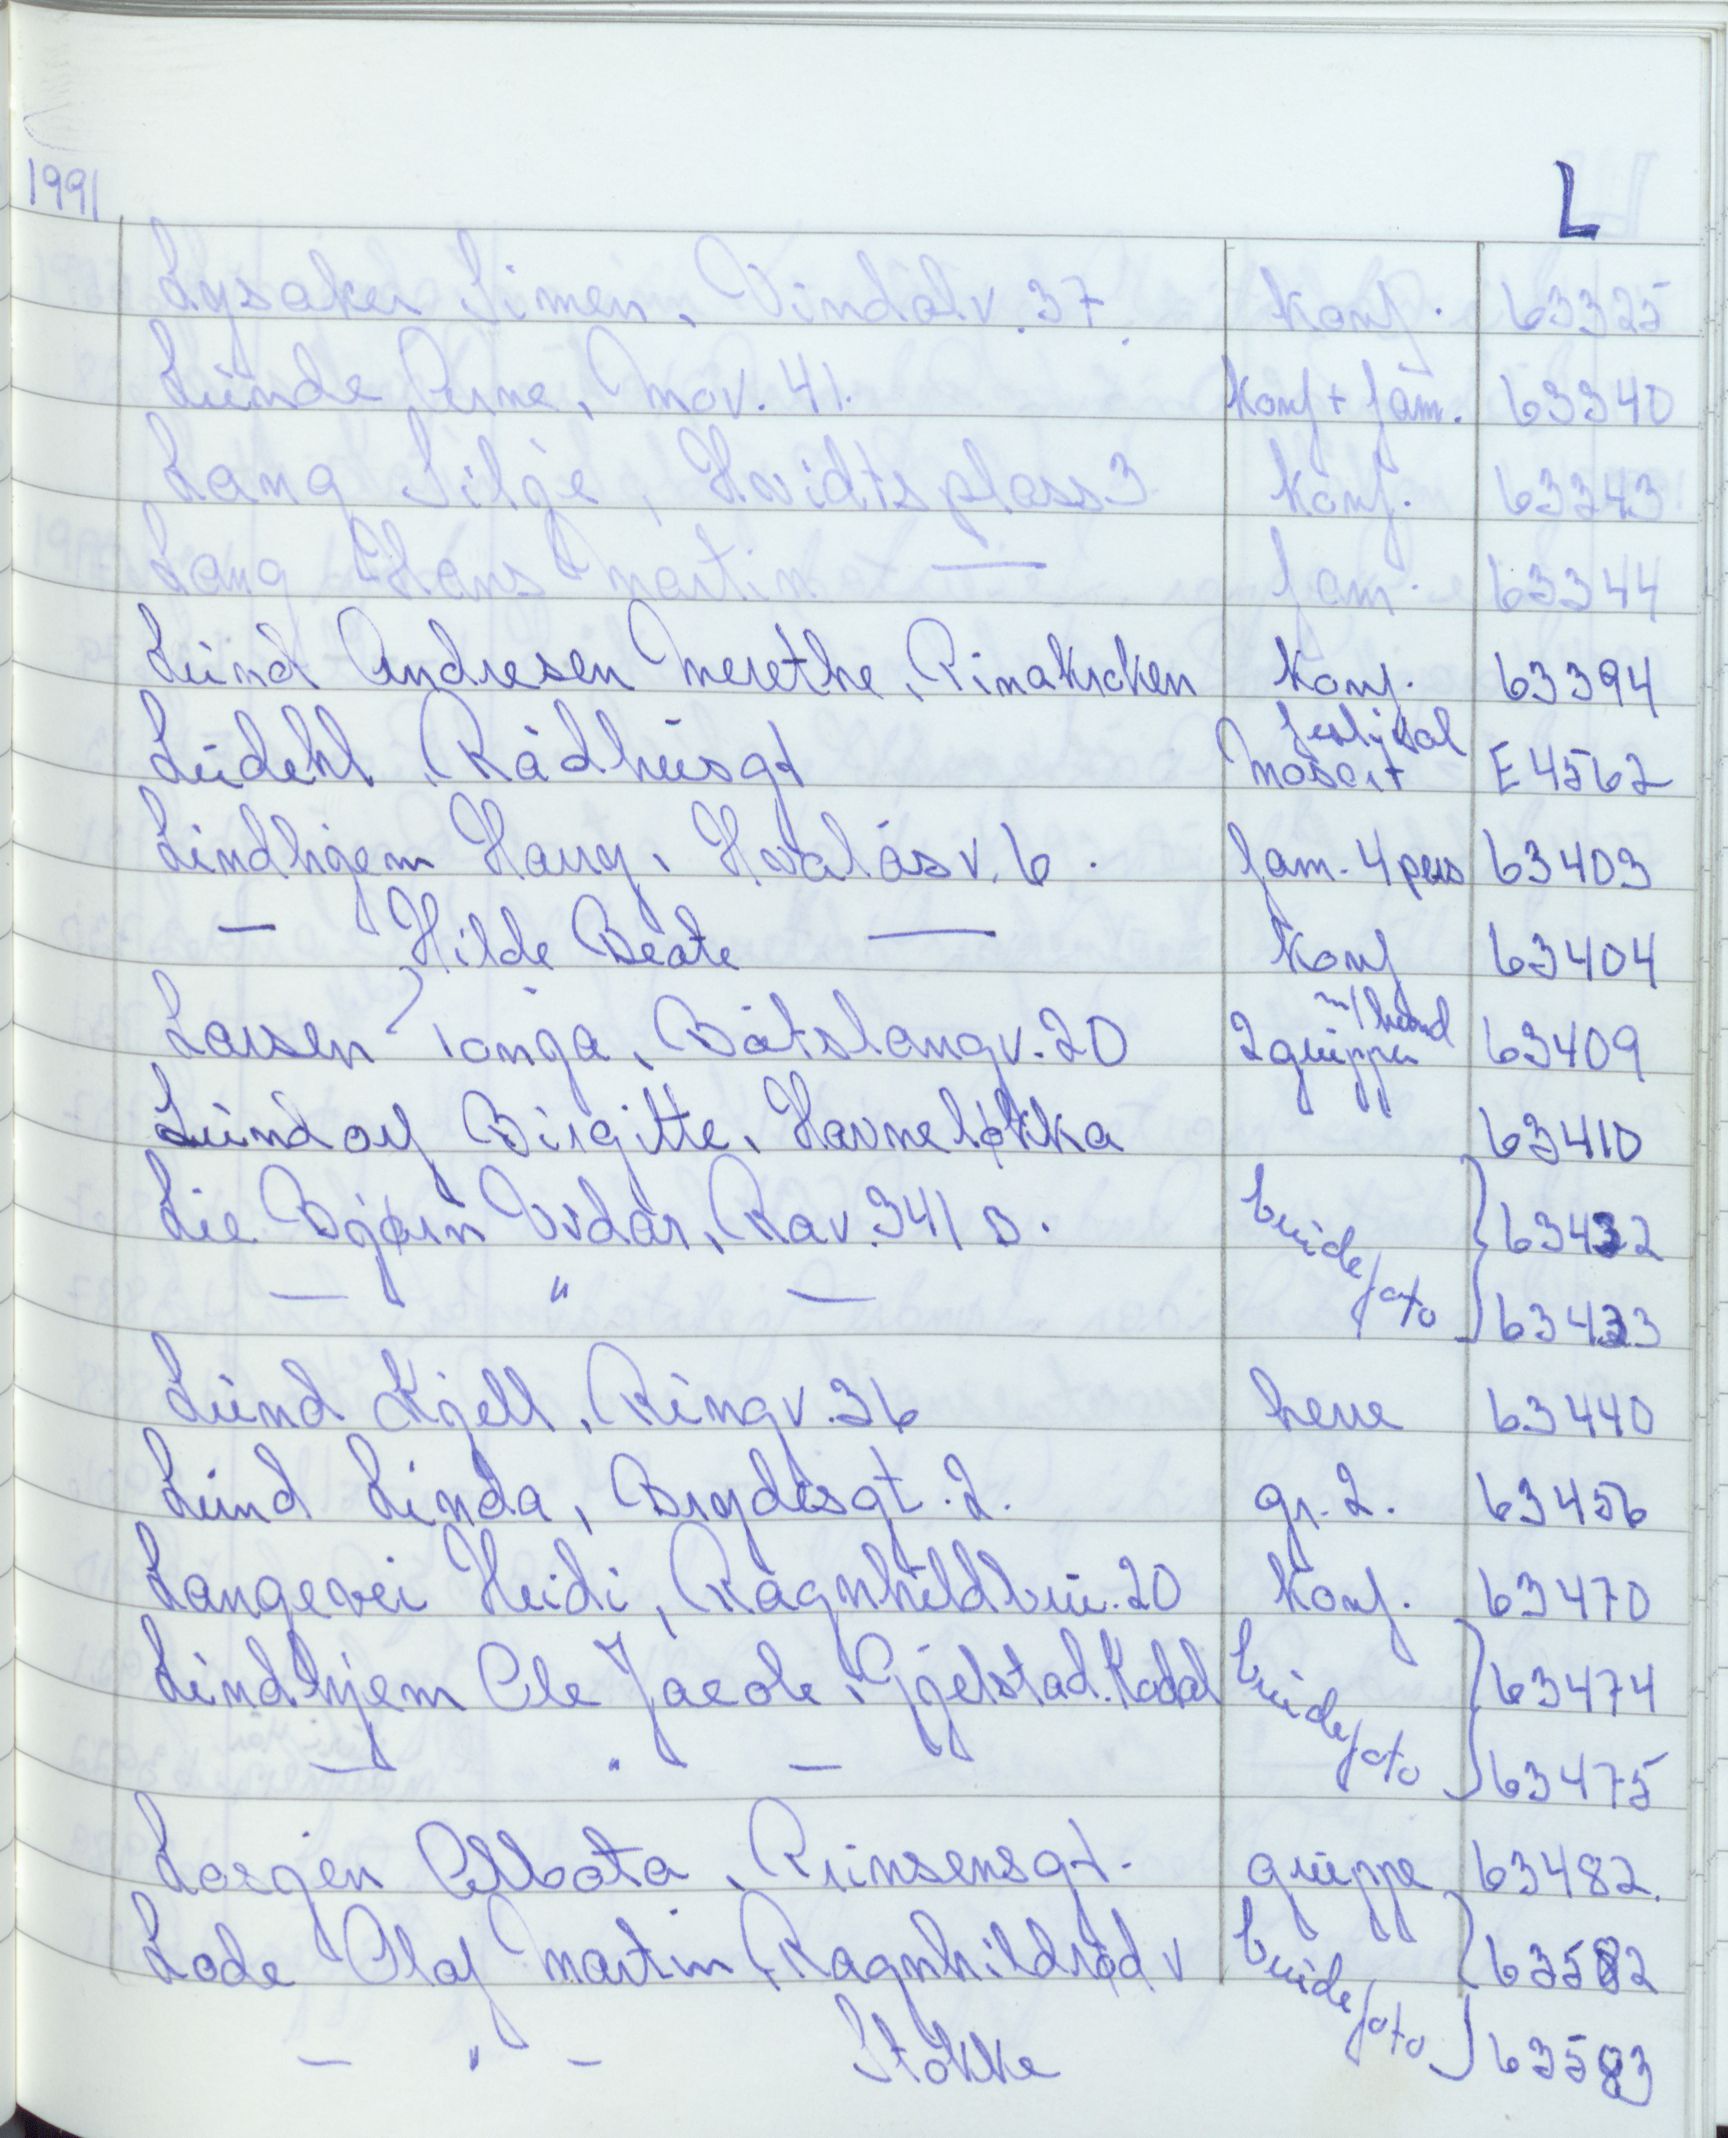 1991
L
Lysaker Simen, Vindalv. 37. konf. 63325
Lunde Arne, Mov. 41. Konf + fam. 63340
Lang Silje, Hvidts plass 3 konf. 63343
Lang Hans Martin — fam. 63344
Lund Andresen Merethe, Rinakroken konf. 63394
festival
Rådhusgt Mosart E4562
Lindhjem Haug, Hvalåsv. 6. fam. 4 pers 63403
— Hilde Beate — konf 63404
m/hund
Larsen Tonja, Båtslangv. 20 2 grupper 63409
Lundoy Birgitte, Havneløkka 63410
Lie Bjørn Vidar, Rav. 341 B. brudefoto 63432
— " — 63433
Lund Kjell, Ringv. 36 herre 63440
Lund Linda, Brydesgt. 2. gr. 2. 63456
Langevei Heidi, 20 konf. 63470
Lindhjem Ole Jacob, Gjelstad. Kodal brudefoto 63474
— " — 63475
gruppe 63482.
Lode Olaf Martin, Ragnhildrød v brudefoto 63582
— " — Stokke 63583